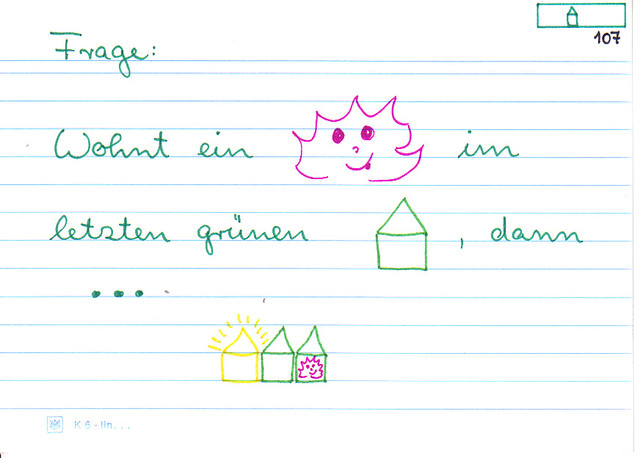 107
Frage:
Wohnt ein im
letzten grünen , dann
...
K 6 - lin...